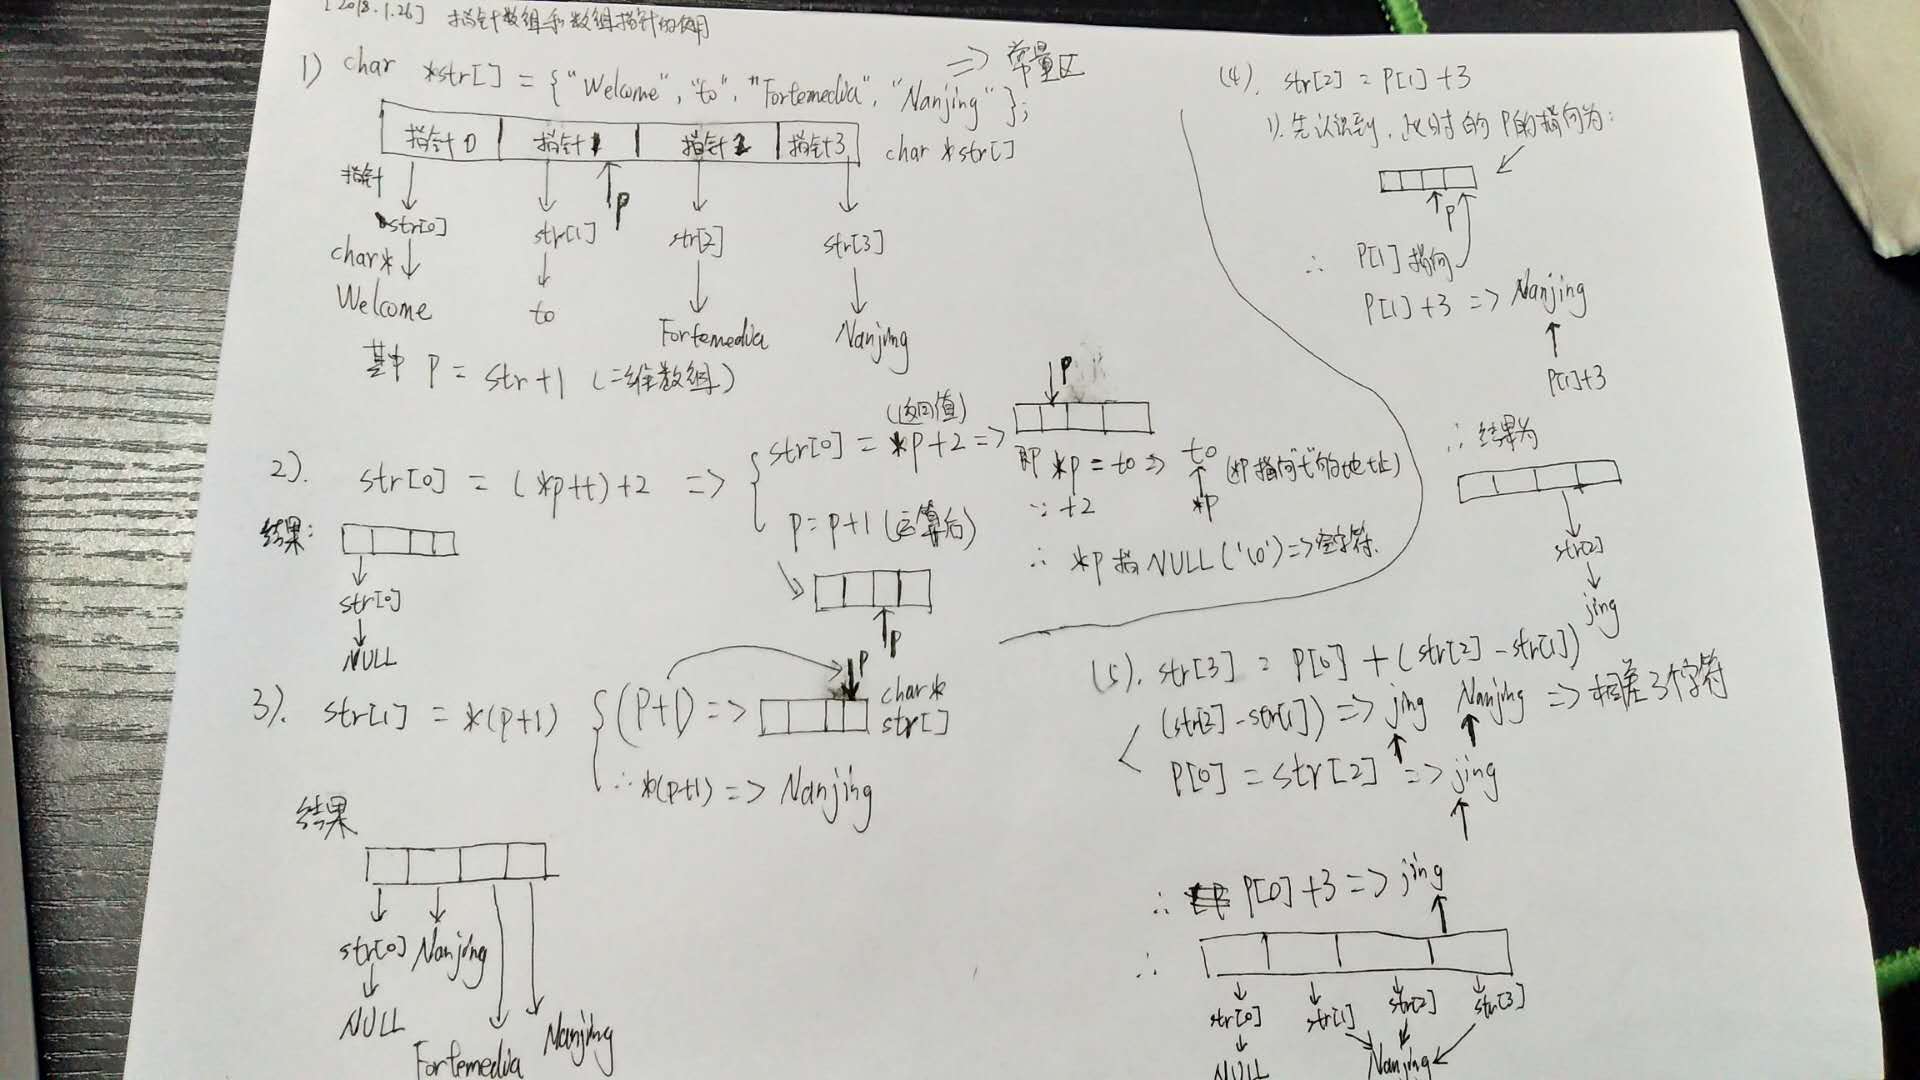 [2018.1.26] 指针数组和数组指针的使用
1) char *str[] = {"Welcome", "to", "Fortemedia", "Nanjing"}; => 常量区
指针0 指针1 指针2 指针3 char *str[]
指针
str[0] str[1] P str[2] str[3]
char*
Welcome to Fortemedia Nanjing
其中 P = str+1 (二维数组)
2). str[0] = (*p++)+2 =>
str[0] = *p+2 (返回值) =>
P
即 *p = to => to (*P指向"t"的地址)
*P
∵ +2
∴ *p 指 NULL ('\0') => 空字符.
P = P+1 (运算后)
P
结果:
str[0]
NULL
3). str[1] = *(p+1)
(P+1) => P char* str[]
∴ *(p+1) => Nanjing
结果
str[0] Nanjing
NULL
Fortemedia Nanjing
(4). str[2] = P[1]+3
1). 先认识到, 此时的 P的指向为:
P
∴ P[1] 指向
P[1]+3 => Nanjing
P[1]+3
∴ 结果为
str[2]
jing
(5). str[3] = P[0] + (str[2] - str[1])
(str[2] - str[1]) => jing Nanjing => 相差3个字符
P[0] = str[2] => jing
∴ P[0]+3 => jing
∴
str[0] str[1] str[2] str[3]
NULL Nanjing